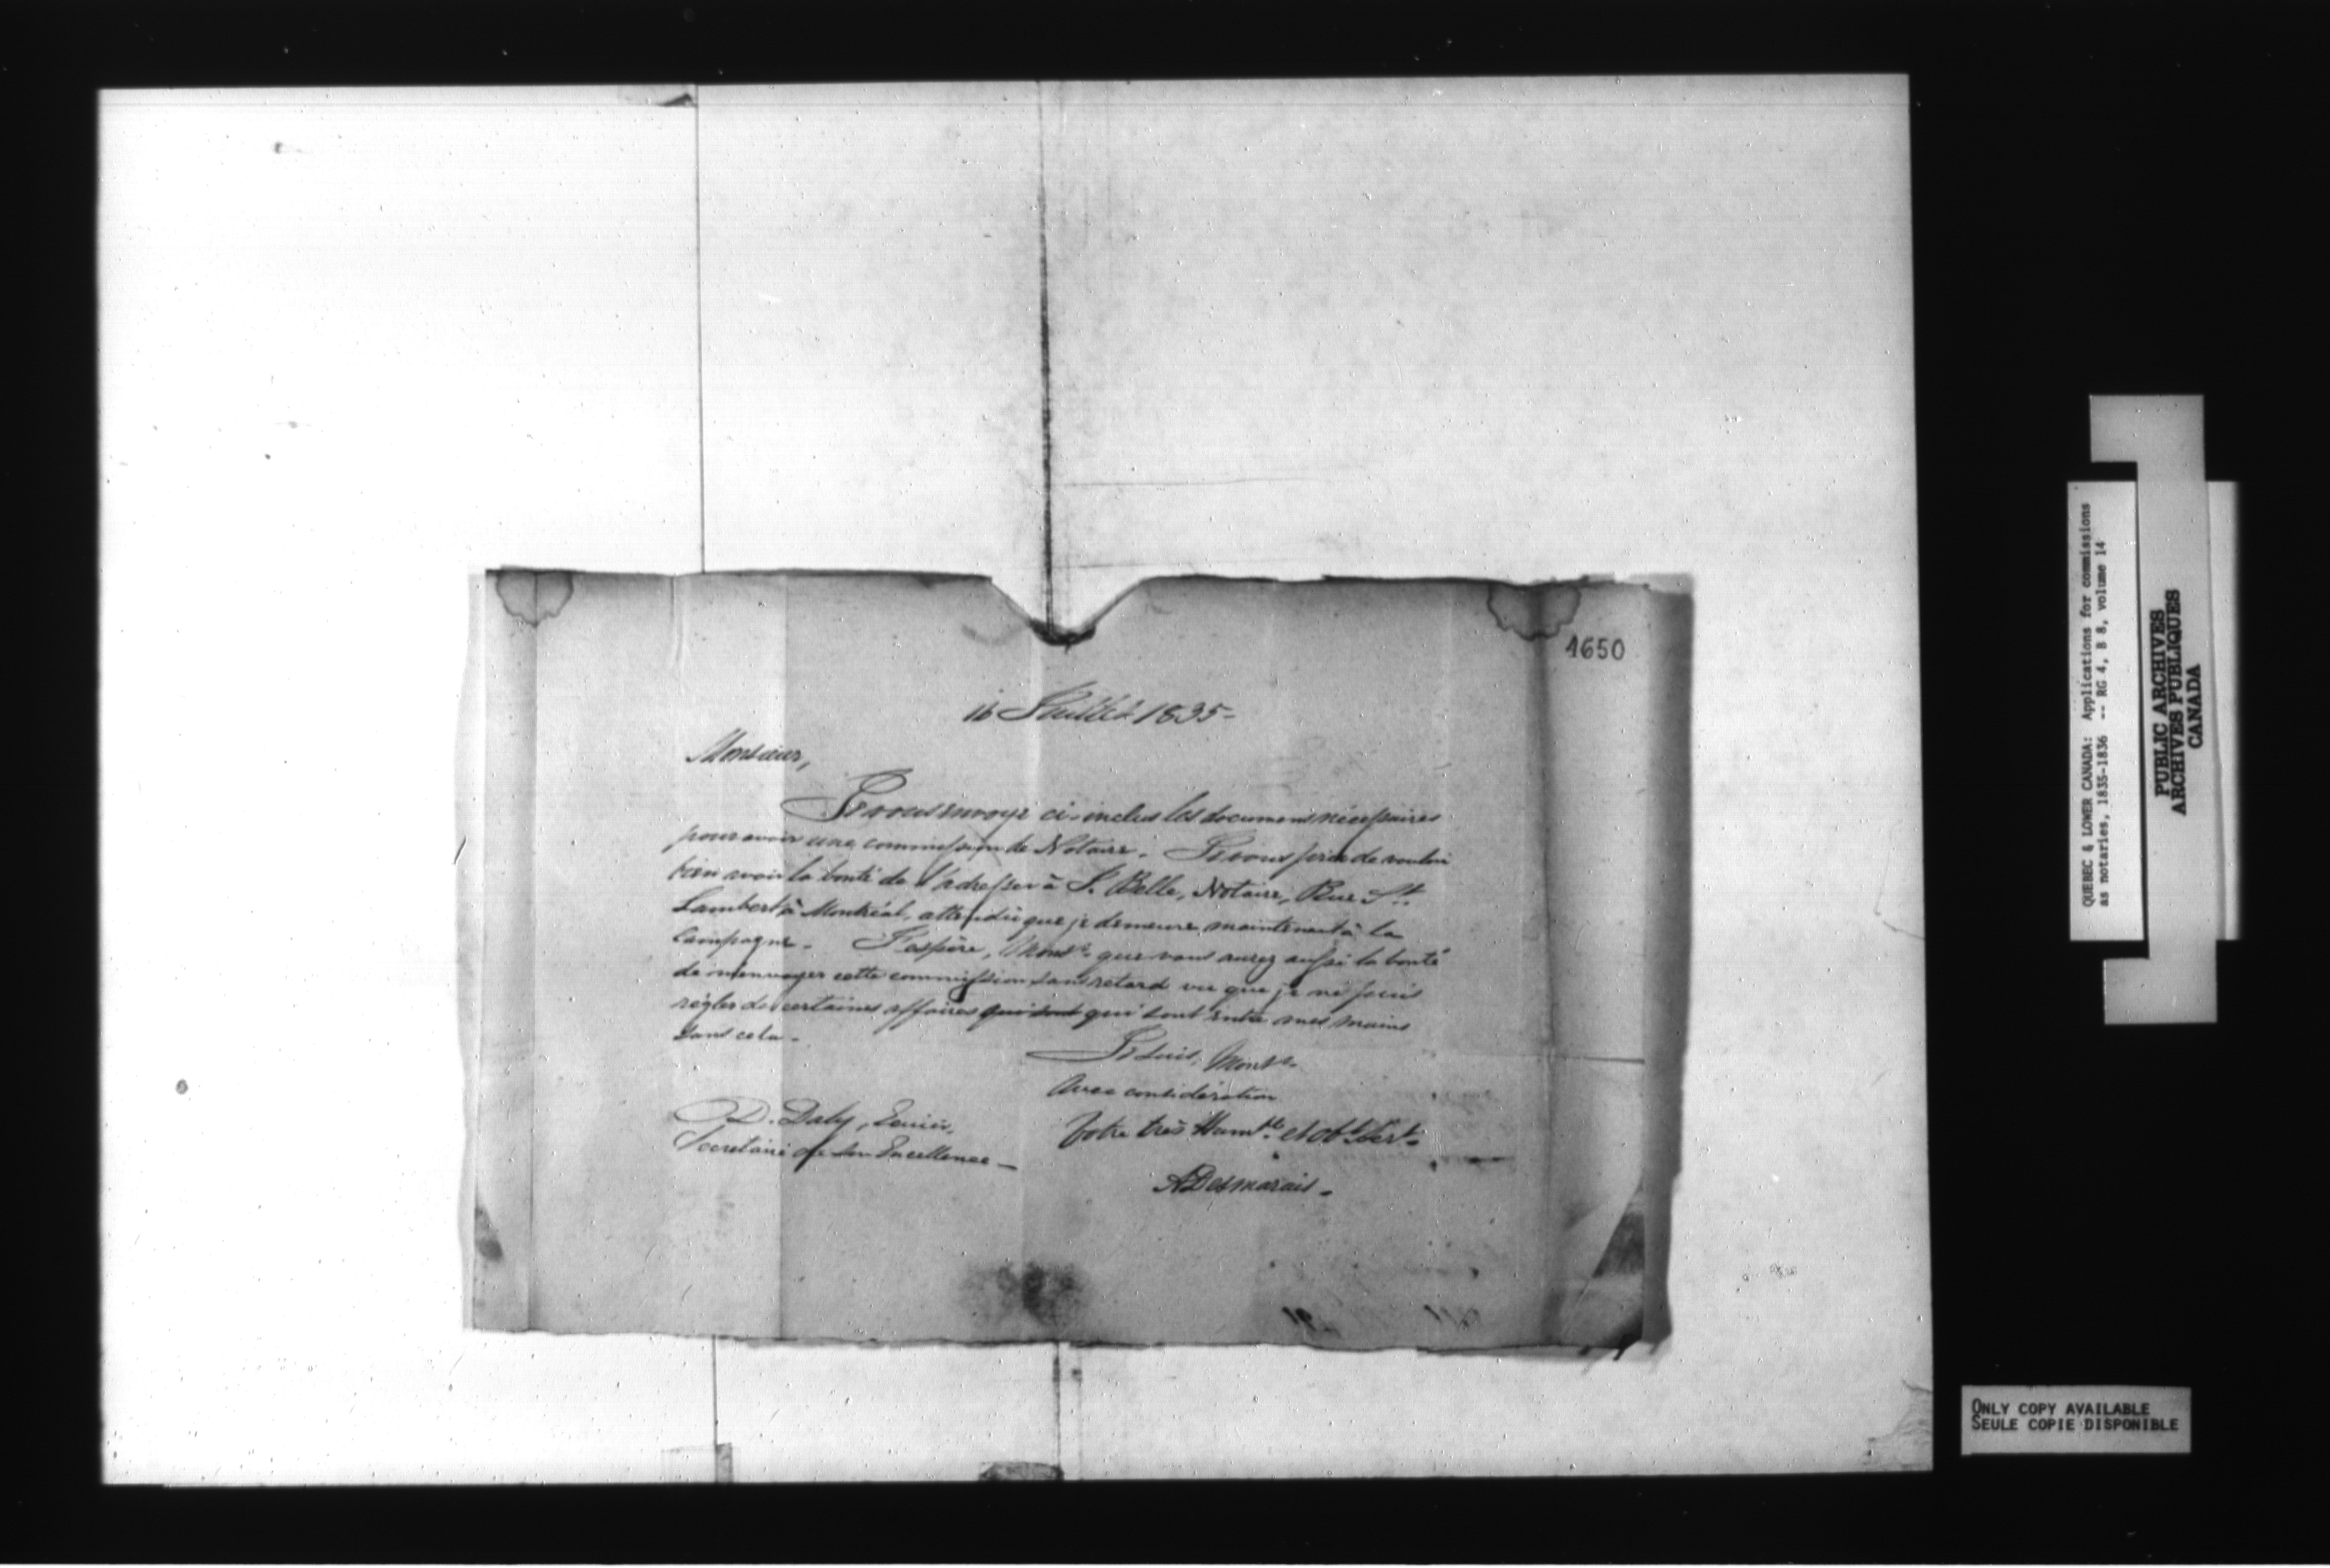 1650
16 Juillet 1835-
Monsieur,
Je vous envoye ci-inclus les documens nécessaires
pour avoir une commission de Notaire. Je vous prie de vouloir
bien avoir la bonté de l'adresser à J. Belle, Notaire, Rue St.
Lambert, à Montréal, attendu que je demeure maintenant à la
Campagne. J'espère, Monsr. que vous aurez aussi la bonté
de m'envoyer cette commission sans retard vu que je ne puis
régler de certaines affaires qui sont qui sont entre mes mains
sans cela.
Je suis, Monsr.
Avec considération
Votre très Humble. et Obt. Sert.
ADesmarais.
D. Daly,
Secretaire de Son Excellence—
QUEBEC & LOWER CANADA: Applications for commissions
as notaries, 1835-1836 -- RG 4, B 8, volume 14
PUBLIC ARCHIVES
ARCHIVES PUBLIQUES
CANADA
ONLY COPY AVAILABLE
SEULE COPIE DISPONIBLE